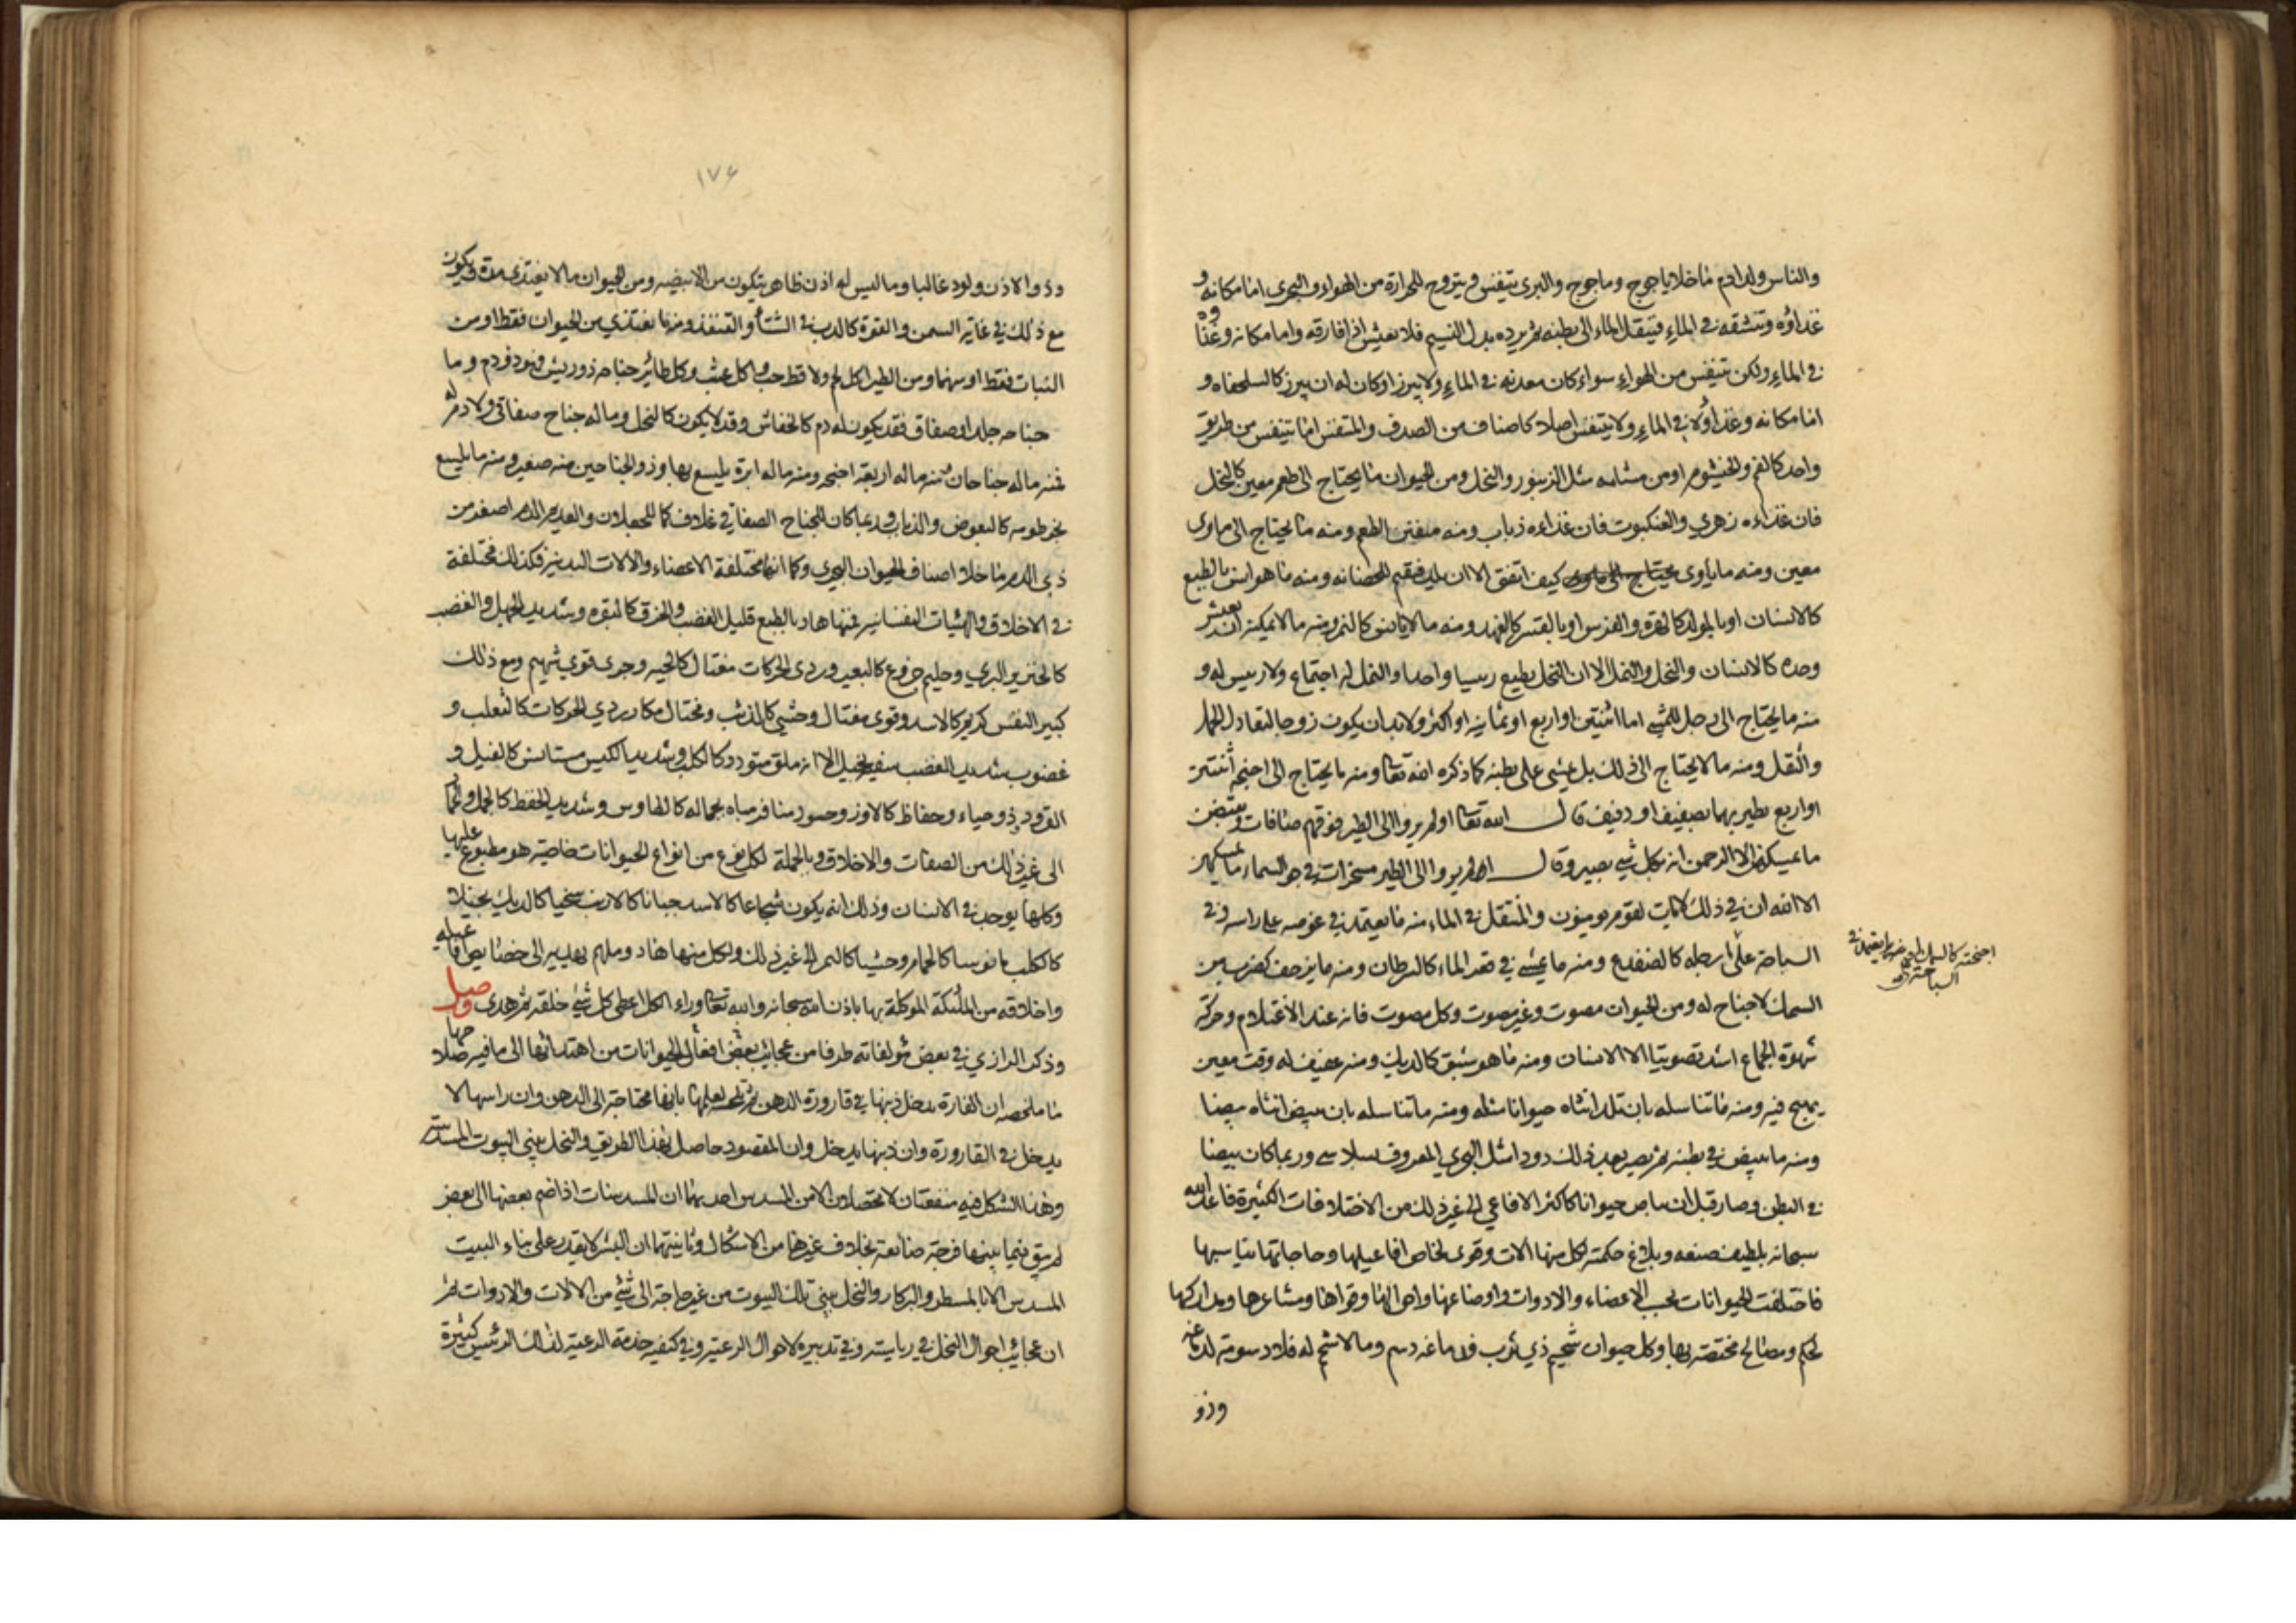 والناس ولد ادم ما خلا ياجوج وماجوج والبري يتنفس فيتروح للحرارة من الهواء والبحري اما مكانه و
غذاؤه وتنشقه في الماء فينقل الماء الى بطنه ثم يرده بدل النسيم فلا يعيش اذا فارقه واما مكانه وغذاوه
في الماء ولكن يتنفس من الهواء سواء كان معدنه في الماء ولا يبرز او كان له ان يبرز كالسلحفاه و
اما مكانه وغذاؤه في الماء ولا يتنفس اصلا كاصناف من الصدف والمتنفس اما يتنفس من طريق
واحد كالفم والخيشوم او من مسامه مثل الزنبور والنحل ومن الحيوان ما يحتاج الى طعم معين كالنحل
فان غذاءه زهري والعنكبوت فان غذاءه ذباب ومنه متفنن الطعم ومنه ما يحتاج الى ماوى
معين ومنه ما ياوى كيف اتفق الا ان يلد فيقيم للحضانه ومنه ما هو انس بالطبع
كالانسان او بالمولد كالهرة والفرس او بالقسر كالفهد ومنه ما لا يانس كالنمر ومنه ما لا يمكنه ان يعيش
وحده كالانسان والنحل والنمل الا ان النحل يطيع رييسا واحدا والنمل له اجتماع ولا رييس له و
منه ما يحتاج الى رجل للمشي اما اثنتين او اربع او ثمانيه او اكثر ولا بد ان يكون زوجا لتعادل الحمل
والنقل ومنه ما لا يحتاج الى ذلك بل يمشي على بطنه كما ذكره الله تعالى ومنه ما يحتاج الى اجنحه اثنتين
او اربع يطير بهما بصفيف او دفيف قال الله تعالى اولم يروا الى الطير فوقهم صافات ويقبضن
ما يمسكهن الا الرحمن انه بكل شيء بصير وقال الم يروا الى الطير مسخرات في جو السماء ما يمسكهن
الا الله ان في ذلك لايات لقوم يومنون والمتنقل في الماء منه ما يعتمد في غوصه على راسه وفي
السباحة على ارجله كالضفدع ومنه ما يمشي في قعر الماء كالسرطان ومنه ما يزحف كضرب من
السمك لا جناح له ومن الحيوان مصوت وغير مصوت وكل مصوت فانه عند الاغتلام وحركة
شهوة الجماع اشد تصويتا الا الانسان ومنه ما هو شبق كالديك ومنه عفيف له وقت معين
يهيج فيه ومنه ما تناسله بان تلد انثاه حيوانا مثله ومنه ما تناسله بان تبيض انثاه بيضا
ومنه ما يبيض في بطنه ثم يصير بعد ذلك دودا مثل البحري المعروف بسلاسى وربما كان بيضا
في البطن وصار قبل ان يباض حيوانا كاكثر الافاعي الى غير ذلك من الاختلافات الكثيرة فاعد الله
سبحانه بلطيف صنعه وبلاغ حكمته لكل منها الات وقوى لخاص افاعيلها وحاجاتها يناسبها
فاختلفت الحيوانات بحسب الاعضاء والادوات واوضاعها واحوالها وقواها ومشاعرها ومداركها
لحكم ومصالح مختصة بها وكل حيوان شحيم ذي ثرب فدماغه دسم وما لا شحم له فلا دسومة لدماغه
وذو
اجنحته كالسمك
السباحة
١٧٤
وذو الاذن ولود غالبا وما ليس له اذن ظاهر يتكون من الابيضه ومن الحيوان ما لا يغتذي مدة ويكون
مع ذلك في غاية السمن والقوة كالدب في الشتاء والقنفذ ومنها ما يغتذي من الحيوان فقط او من
النبات فقط او منهما ومن الطير اكل لحم ولاقط حب واكل عشب وكل طائر جناحه ذو ريش فهو ذو دم وما
جناحه جلد او صفاق فقد يكون له دم كالخفاش وقد لا يكون كالنحل وما له جناح صفاقي ولا دم له
فمنه ما له جناحان ومنه ما له اربعة اجنحه ومنه ما له ابرة يلسع بها وذو الجناحين منه صغير ومنه ما يلسع
بخرطومه كالبعوض والذباب وربما كان للجناح الصفاقي غلاف كما للجعلان والعديم الدم اصغر من
ذي الدم ما خلا اصناف الحيوان البحري وكما انها مختلفة الاعضاء والالات البدنية فكذلك مختلفة
في الاخلاق والهيئات النفسانيه فمنها هاد بالطبع قليل الغضب والخرق كالبقره وشديد الجهل والغضب
كالخنزير البري وحليم خروع كالبعير وردي الحركات مغتال كالحيه وجرى قوي شهيم ومع ذلك
كبير النفس كريم كالاسد وقوى مغتال وحشي كالذئب ومحتال مكار ردي الحركات كالثعلب و
غضوب شديد الغضب سفيه الا انه ملق متودد كالكلب وشديد الكيس مستانس كالفيل و
القرود وذو حياء وحفاظ كالاوز وحسود منافر مباه بجماله كالطاوس وشديد الحفظ كالجمل والحمار
الى غير ذلك من الصفات والاخلاق وبالجملة لكل نوع من انواع الحيوانات خاصية هو مطبوع عليها
وكلها يوجد في الانسان وذلك انه يكون شجاعا كالاسد جبانا كالارنب سخيا كالديك بخيلا
كالكلب مانوسا كالحمام وحشيا كالنمر الى غير ذلك ولكل منها هاد وملهم يهديه الى خصائص افاعيله
واخلاقه من الملئكة الموكلة بها باذن الله سبحانه والله تعالى وراء الكل اعطى كل شيء خلقه ثم هدى وصل
وذكر الرازي في بعض مؤلفاته طرفا من عجائب بعض افعال الحيوانات من اهتدائها الى ما فيه صلاحها
ما ملخصه ان الفارة يدخل ذنبها في قارورة الدهن ثم تلحسه لعلمها بانها محتاجة الى الدهن وان راسها لا
يدخل في القارورة وان ذنبها يدخل وان المقصود حاصل بهذا الطريق والنحل يبني البيوت المسدسة
وهذا الشكل فيه منفعتان لا تحصلان الا من المسدس احديهما ان المسدسات اذا ضم بعضها الى بعض
لم يبق فيما بينها فرجة ضائعة بخلاف غيرها من الاشكال وثانيتهما ان البشر لا يقدر على بناء البيت
المسدس الا بالمسطر والبركار والنحل يبني تلك البيوت من غير حاجة الى شيء من الالات والادوات ثم
ان عجائب احوال النحل في رياسته وفي تدبيره لاحوال الرعية وفي كيفية خدمة الرعية لذلك الرئيس كثيرة